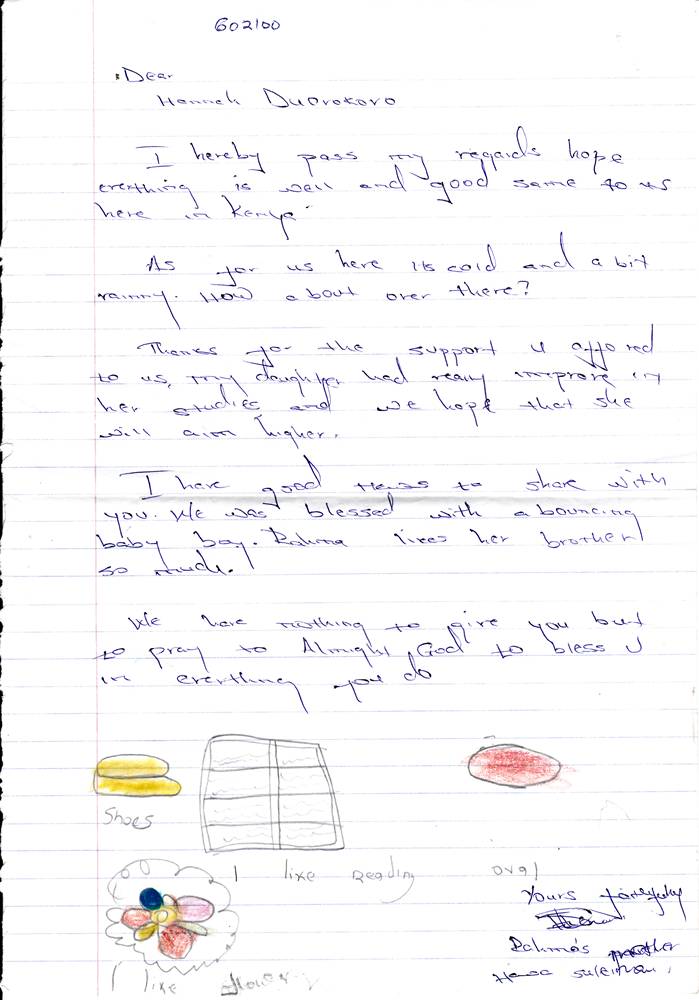 602100
Dear
Hannah Duorokoro
I hereby pass my regards hope
ererthing is well and good same to us
here in Kenya
As for us here its cold and a bit
rainny. How about over there?
Thanks for the support u affored
to us, my daughter had really improve in
her studies and we hope that she
will aim higher.
I have good news to share with
you. We was blessed with a bouncing
baby boy. Rahma likes her brother
so much.
We have nothing to give you but
to pray to Almight God to bless U
in ererthing you do
Shoes
I like Reading
oval
Yours
Rahma's mother
Suleiman.
I like flower